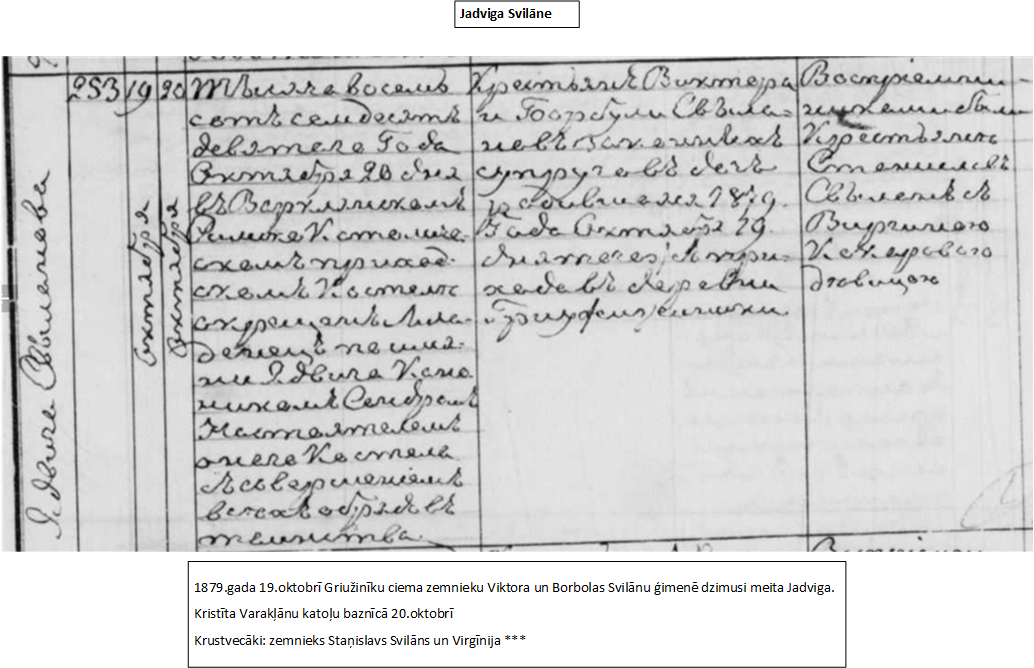 Jadviga Svilāne
Ядвига Свыланова
253
19
Октября
20
Октября
Тысяча восемь
сотъ семдесятъ
девятаго Года
Октября 20 дня
въ Варклянскомъ
Римско Католиче-
скомъ приход-
скомъ Костелѣ
окрещенъ Мла-
денецъ по име-
ни Ядвига Кано
никомъ
Настоятелемъ
онаго Костела
съ совершеніемъ
всѣхъ обрядовъ
таинства.
Крестьянъ Виктора
и Борбули Свыла-
новъ законныхъ
супруговъ дочь
родившаяся 1879.
Года Октября 19.
дня того же При-
хода въ деревни
Воспріемни-
ками были
Крестьянъ
Станиславъ
Свыланъ съ
Виргиніею
дѣвицою
1879.gada 19.oktobrī Griužinīku ciema zemnieku Viktora un Borbolas Svilānu ģimenē dzimusi meita Jadviga.
Kristīta Varakļānu katoļu baznīcā 20.oktobrī
Krustvecāki: zemnieks Staņislavs Svilāns un Virgīnija ***